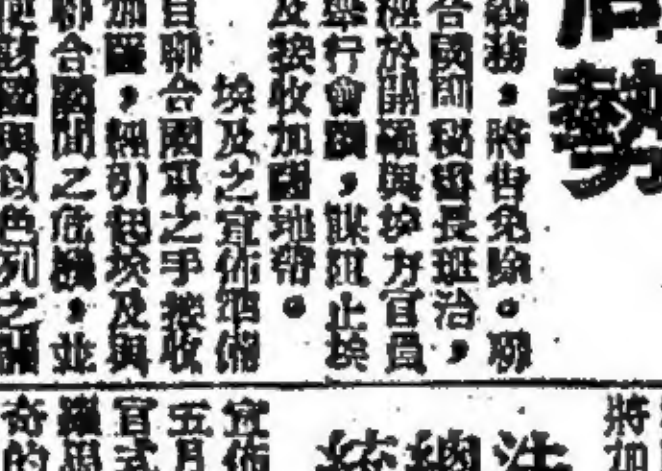 局勢
務，將告免除。聯
合國副秘書長班治，
經於開羅與埃方官員
舉行會議，謀阻止埃
及接收加薩地帶。
埃及之宣佈準備
自聯合國軍之手接收
加薩，經引起埃及與
聯合國間之危機，並
使該國與以色列之關
將加
法總統
宣佈
五月
官式
羅
奇的